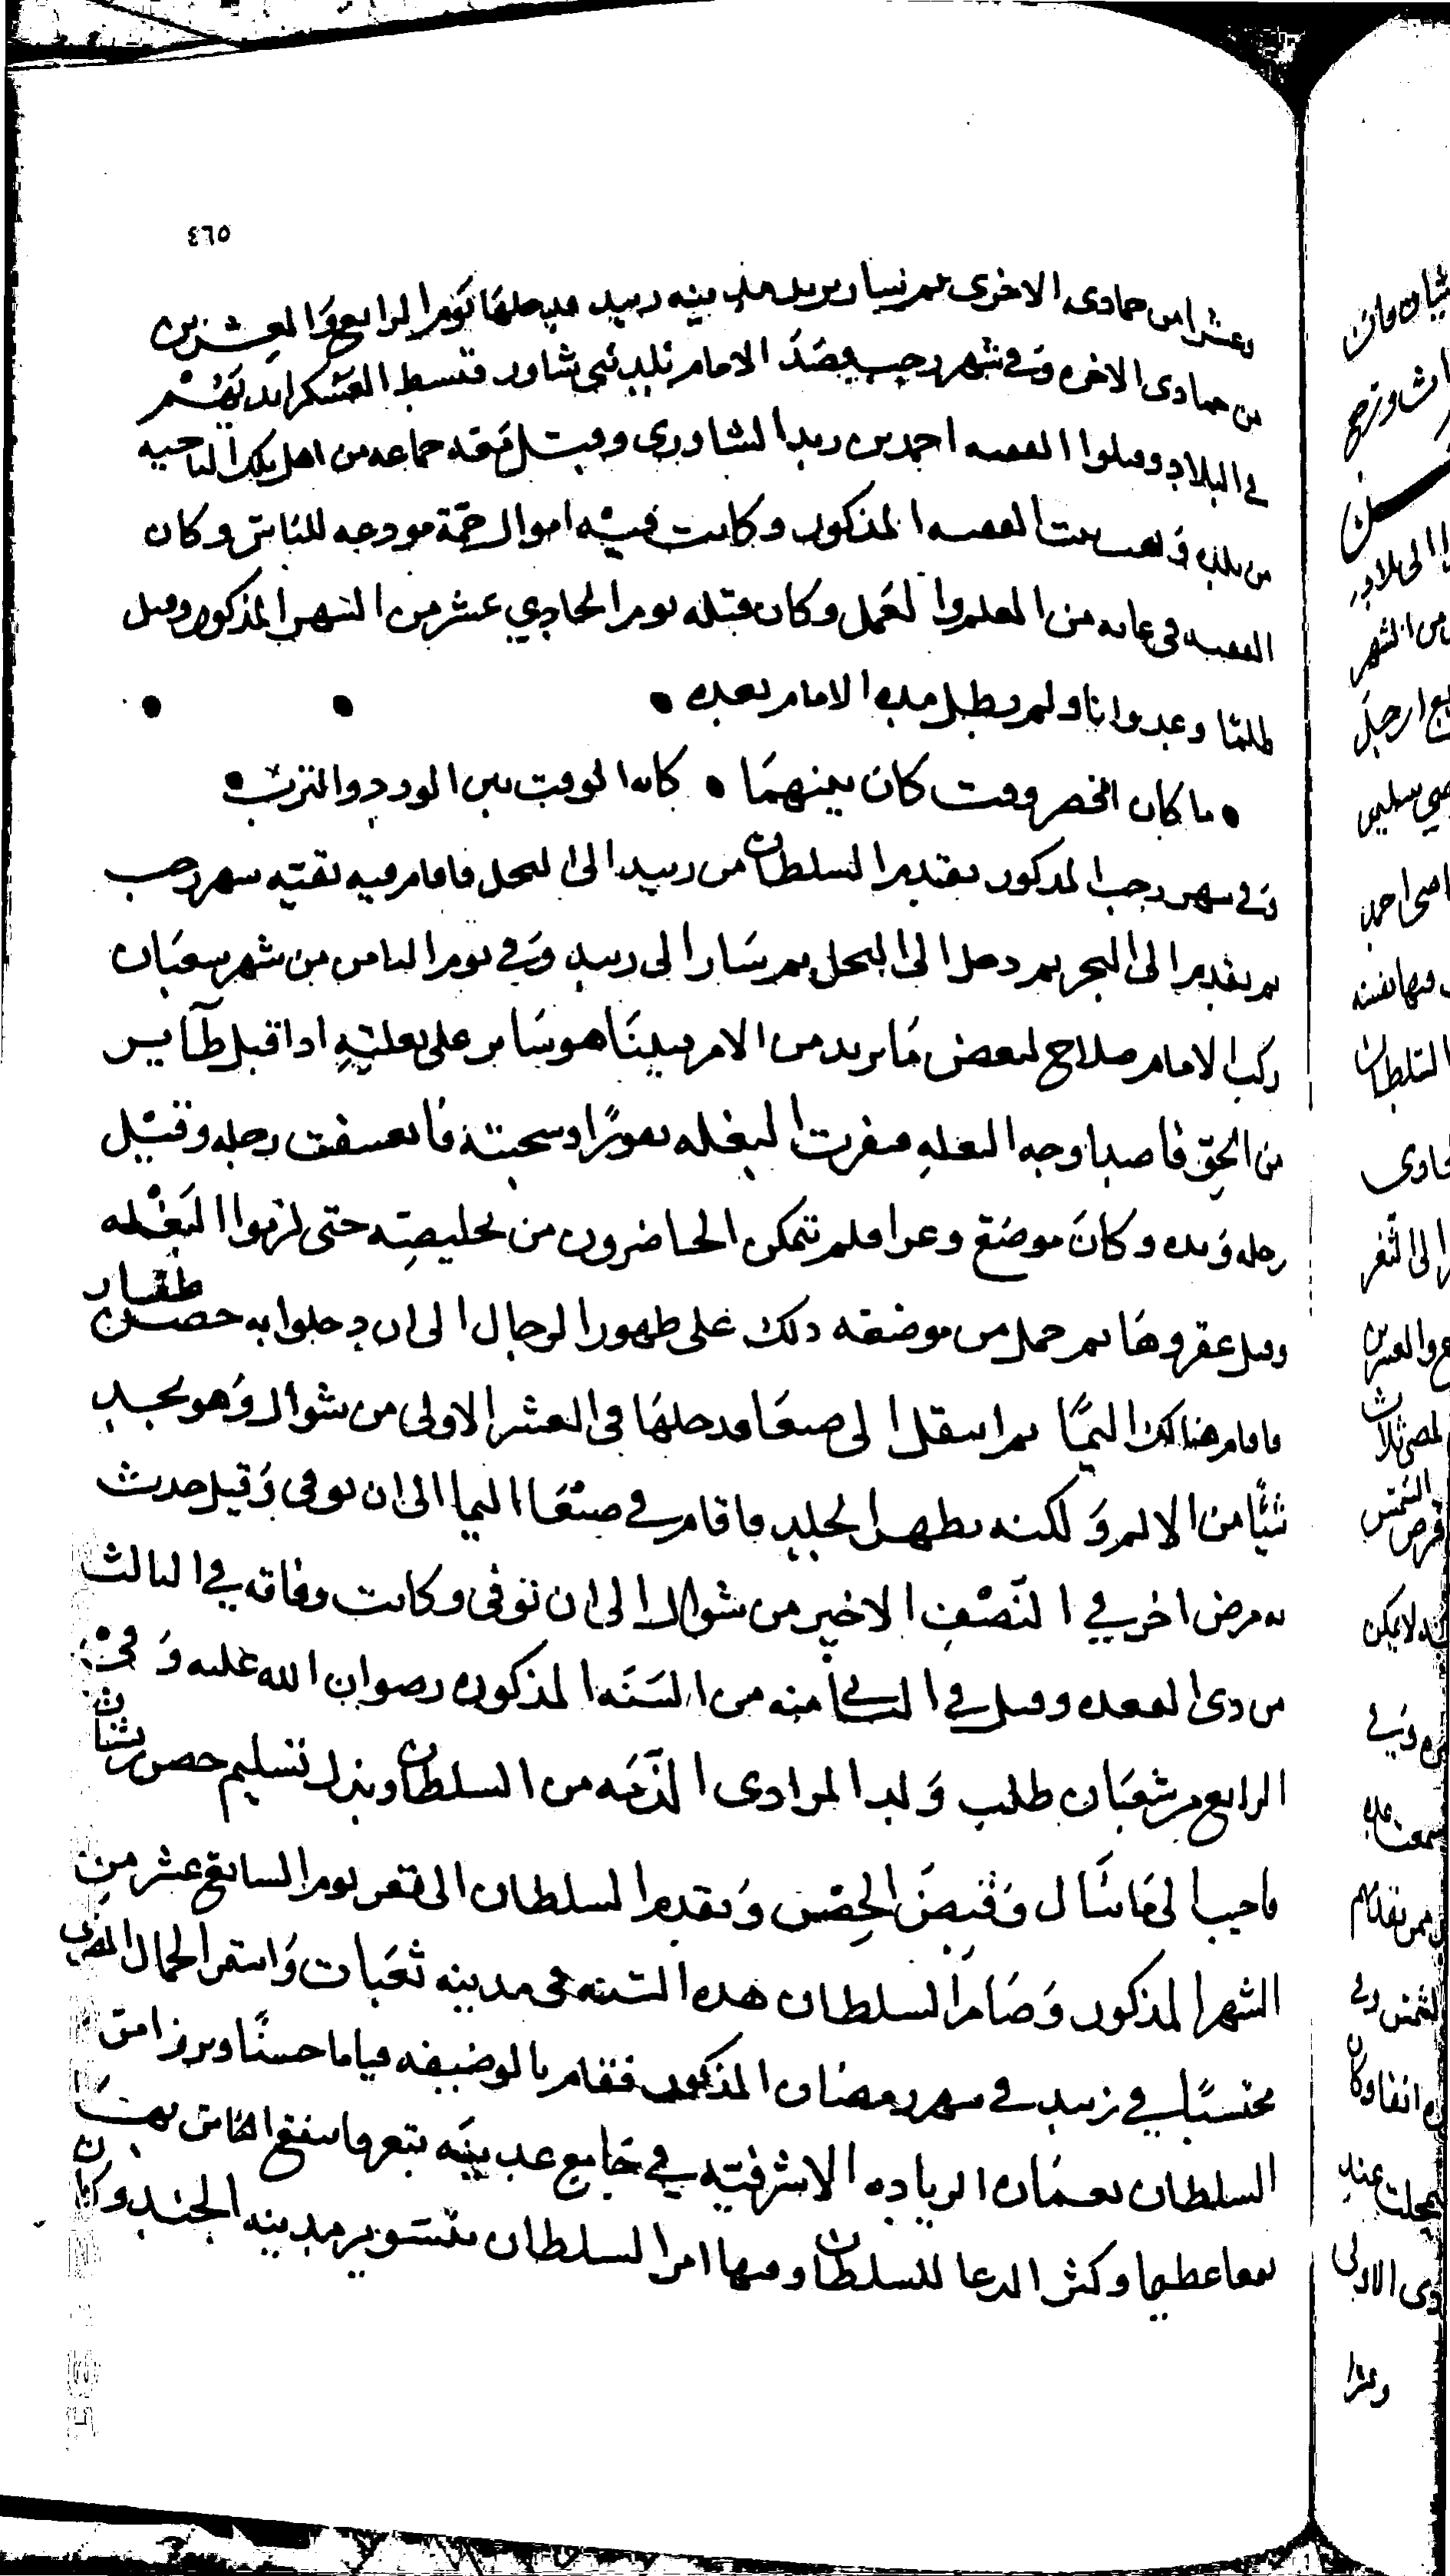 ٤٦٥
وعشرا من جمادى الاخرى ثم سار يريد مدينه زبيد فدخلها يوم الرابع والعشرين
من جمادى الاخره وفي شهر رجب قصد الامام بلد بني شاور فبسط العسكر ايديهم
في البلاد وقتلوا الفقيه احمد بن زيد الشاوري وقتل معه جماعه من اهل تلك الناحيه
من بلده ونهب بيت الفقيه المذكور وكانت فيه اموال جمة مودعه للناس وكان
الفقيه في غايه من العلم والعمل وكان قتله يوم الحادي عشر من الشهر المذكور وقتل
ظلما وعدوانا ولم تطل مده الامام بعده
ما كان اقصر وقت كان بينهما كانه الوقت بين الورد والقرب
وفي شهر رجب المذكور تقدم السلطان من زبيد الى النخل فاقام فيه بقيه شهر رجب
ثم تقدم الى البحر ثم دخل الى النخل ثم سار الى زبيد وفي يوم الثامن من شهر شعبان
ركب الامام صلاح لبعض ما يريد من الامر فبينا هو ساير على بغلته اذ اقبل طاير
من الجو فاصاب وجه البغله فنفرت البغله نفورا وسحبته فانعسفت رجله وقيل
رجله ويده وكان موضع وعر افلم تتمكن الحاضرون من تخليصه حتى لزموا البغله
وقيل عقروها ثم حمل من موضعه ذلك على ظهور الرجال الى ان دخلوا به حصن ظفار
فاقام هنالك اليما ثم انتقل الى صنعا فدخلها في العشر الاولى من شوال وهو يجد
شيا من الالم ولكنه يظهر الجلد فاقام في صنعا اليما الى ان توفي وقيل حدث
به مرض اخر في النصف الاخير من شوال الى ان توفي وكانت وفاته في الثالث
من ذي القعده وقيل في الثامنه من السنه المذكوره رضوان الله عليه وفي
الرابع من شعبان طلب ولد المرادي الذمه من السلطان وبذل تسليم حصن
فاجيب الى ما سال وقبض الحصن وتقدم السلطان الى تعز يوم السابع عشر من
الشهر المذكور وصام السلطان هذه السنه في مدينه ثعبات واستمر الجمال المصري
محتسبا في زبيد في شهر رمضان المذكور فقام بالوضيفه قياما حسنا وبرز امر
السلطان بعماره الزياده الاشرفيه في جامع عدينه بتعز فانتفع الناس بها
نفعا عظيما وكثر الدعا للسلطان وفيها امر السلطان بتسوير مدينه الجند وكان